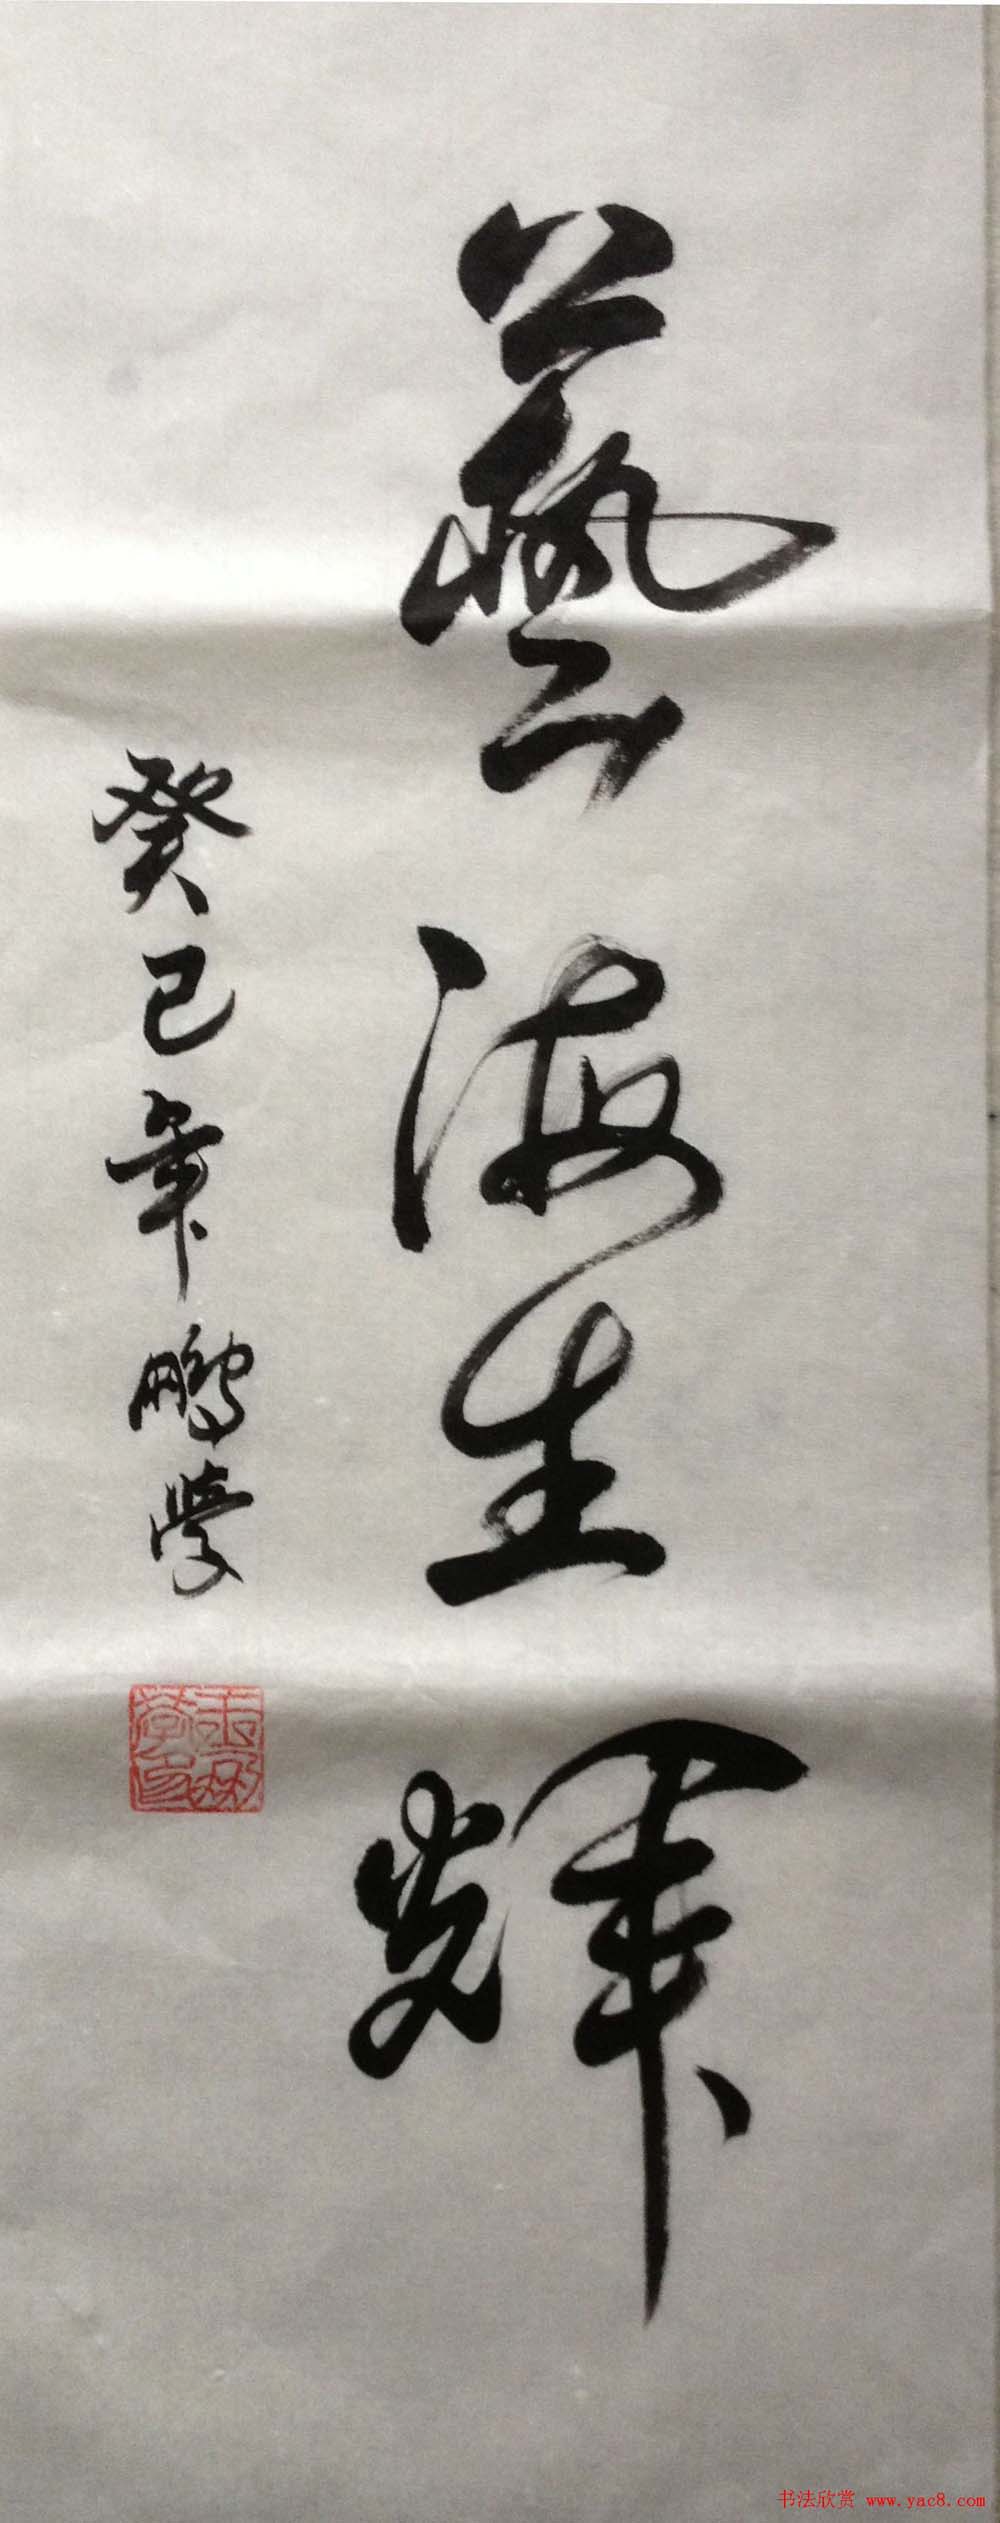 藝海生輝
癸巳年鵬学
王鵬
学印
书法欣赏 www.yac8.com